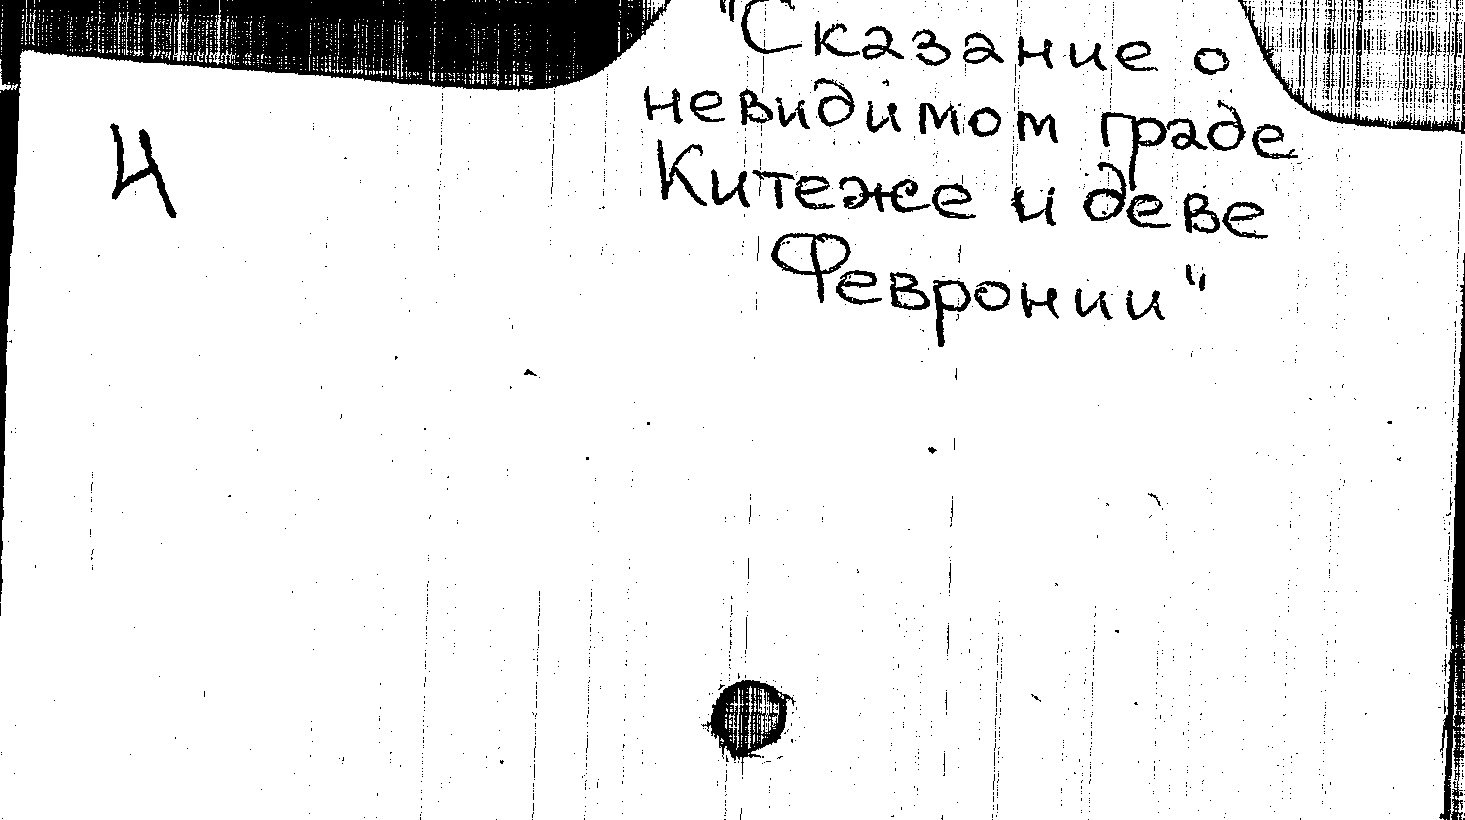 "Сказание о
невидимом граде
Китеже и деве
Февронии"
И